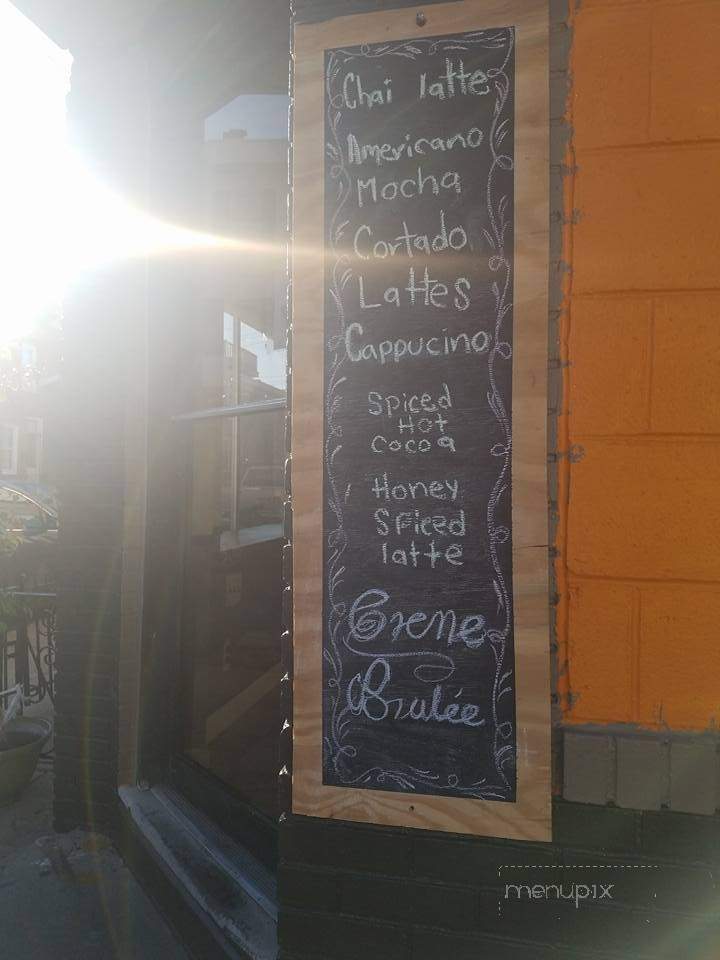 Chai latte
Americano
Mocha
Cortado
Lattes
Cappucino
Spiced
Hot
Cocoa
Honey
Spiced
latte
Creme
Brulée
menupix